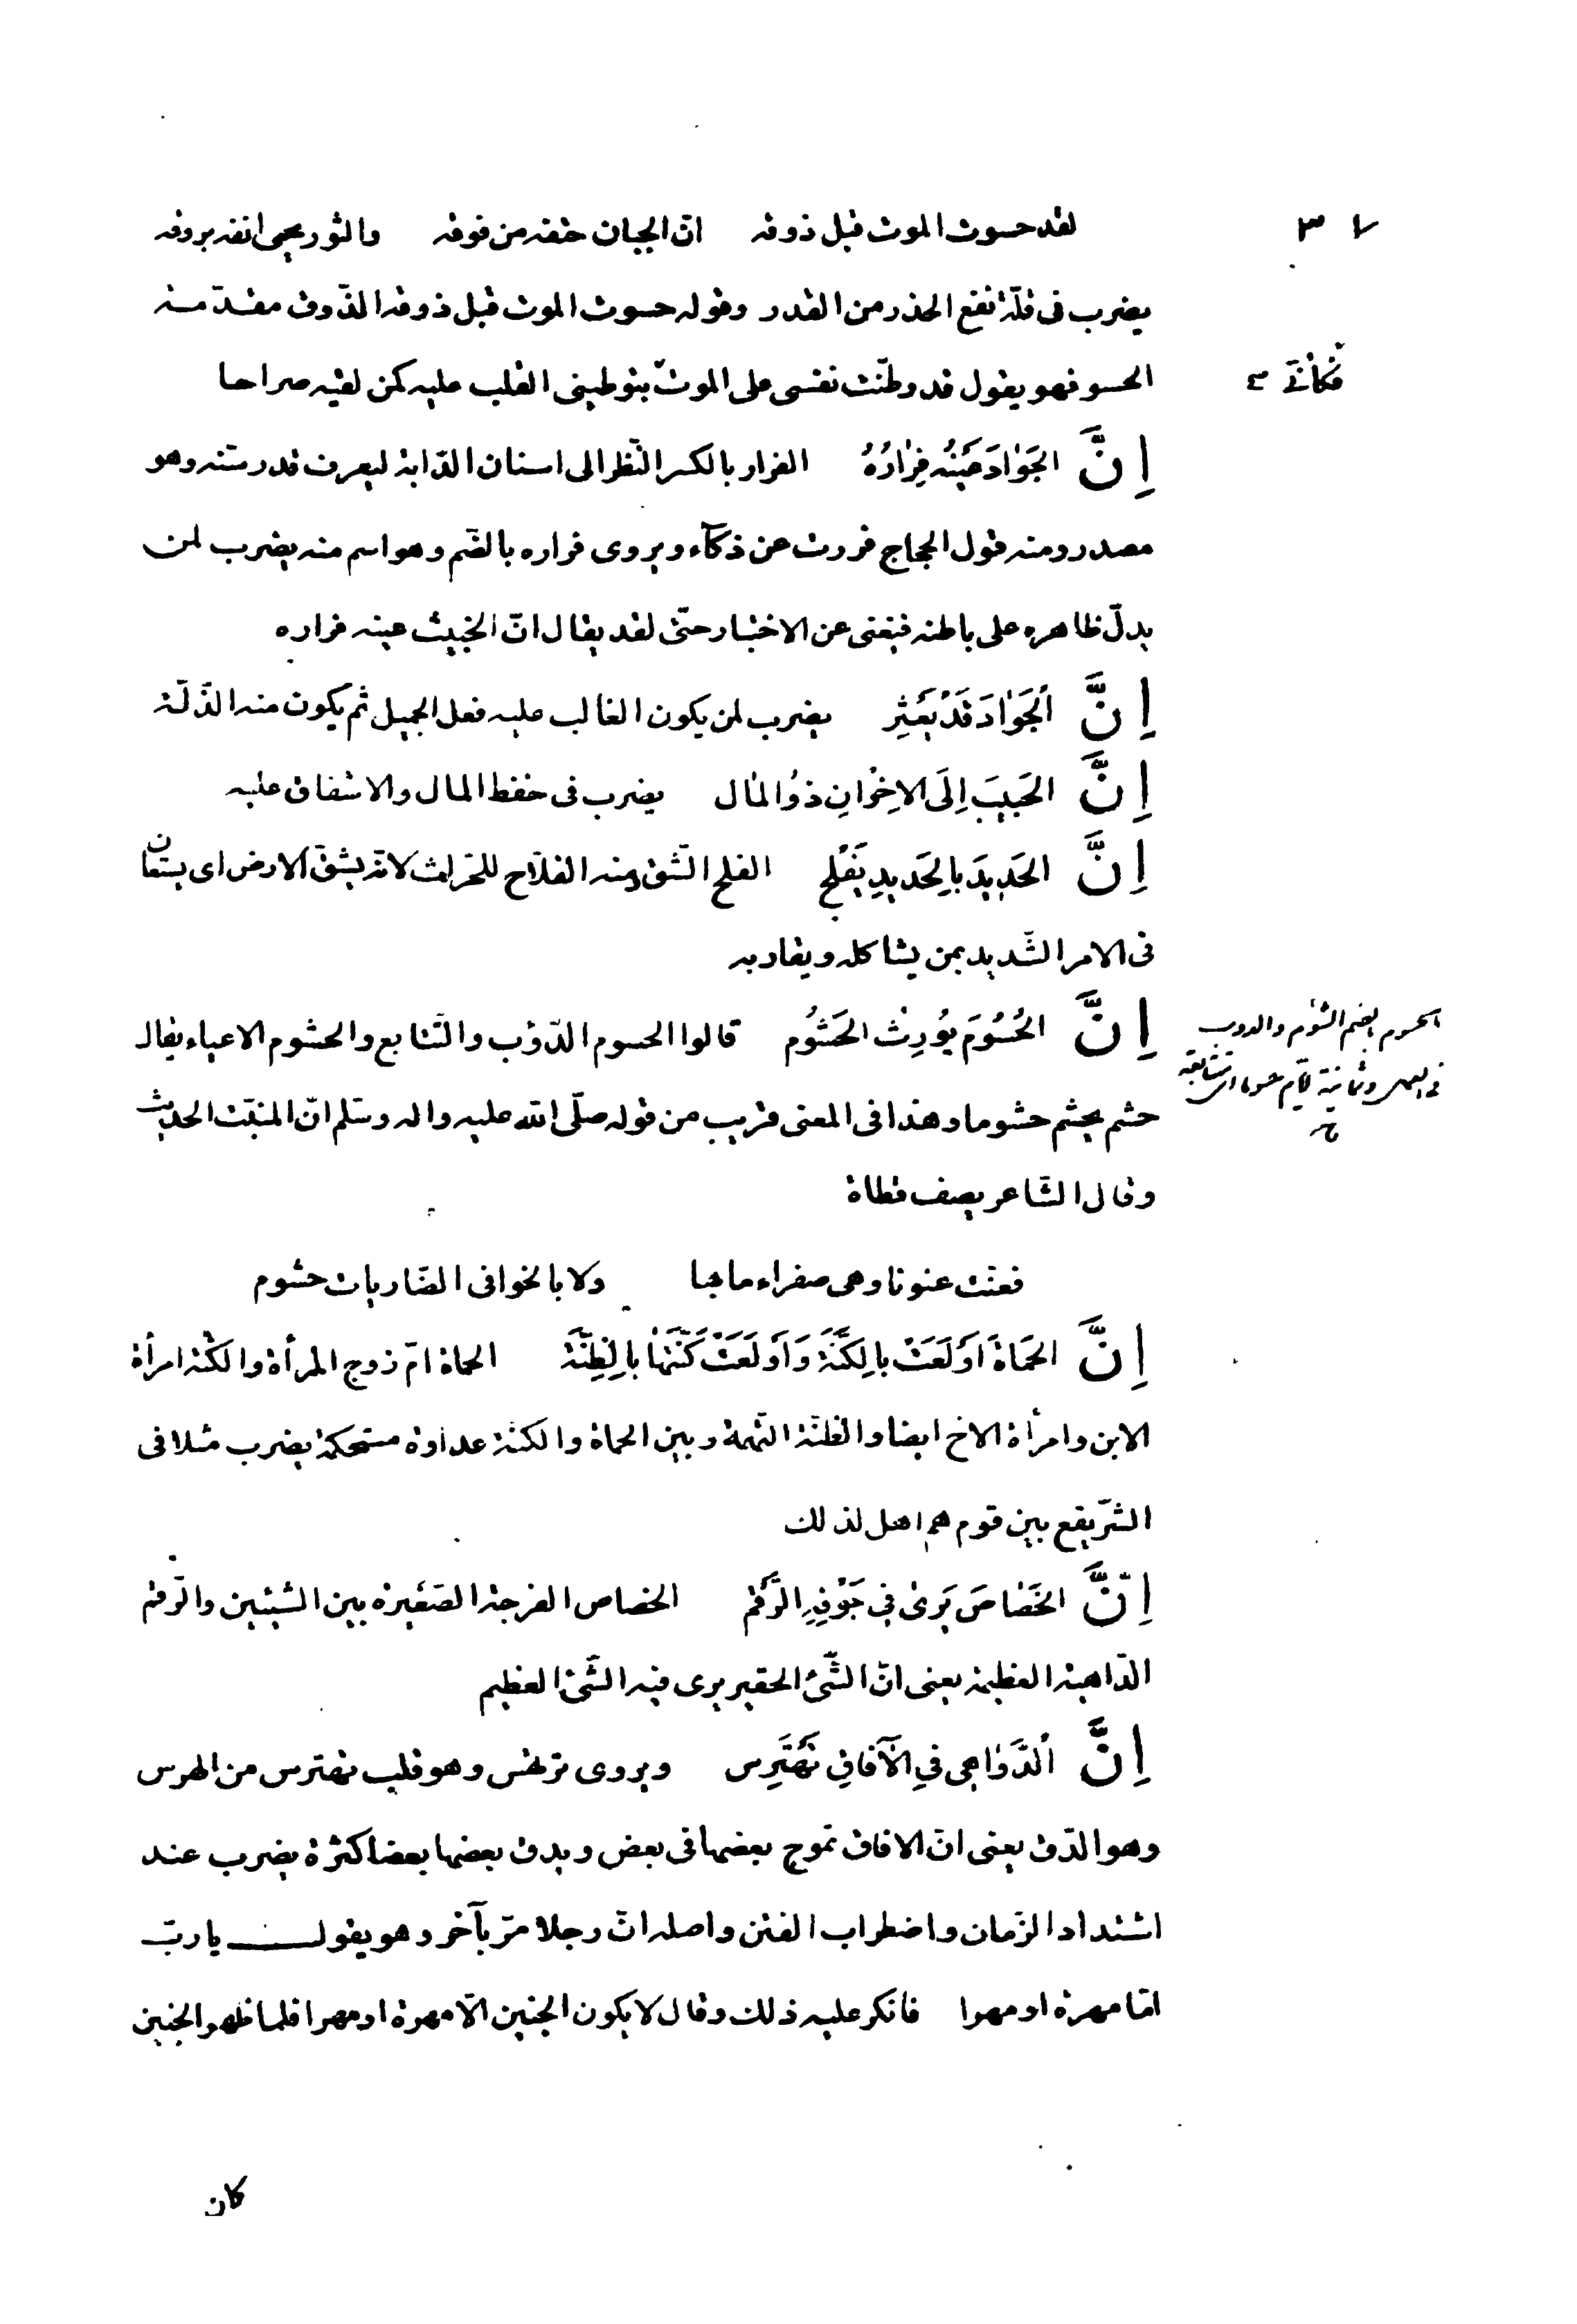 لقد حسوت الموت قبل ذوقه انّ الجبان حتفه من فوقه والثور يحمى انفه بروقه
يضرب فى قلّة نفع الحذر من القدر وقوله حسوت الموت قبل ذوقه الذّوق مقدّمة
الحسو فهو يقول قد وطّنت نفسى على الموت بتوطينى القلب عليه كمن لقيه صراحا
فكانّى
اِنَّ الجَوٰادَ عَيْنُه فِرٰارُهُ الفرار بالكسر النّظر الى اسنان الدّابة ليعرف قدر سنّه وهو
مصدر ومنه قول الحجاج فررت عن ذكآء ويروى فراره بالضّم وهو اسم منه يضرب لمن
يدلّ ظاهره على باطنه فيغنى عن الاختبار حتّى لقد يقال انّ الخبيث عينه فراره
اِنَّ اَلجَوٰادَ قَدْ يَعْثِرِ يضرب لمن يكون الغالب عليه فعل الجميل ثم يكون منه الذّلّة
اِنَّ الحَبِيبَ اِلَى الاِخْوٰانِ ذُوالمٰال يضرب فى حفظ المال والاشفاق عليه
اِنَّ الحَدِيدَ بِالحَدِيدِ يُفْلَح الفلح الشّق ومنه الفلاّح للحرّاث لانّه يشقّ الارض اى يستعان
فى الامر الشّديد بمن يشاكله ويقاربه
اِنَّ الحُسُوْمَ يُورِثُ الحَشُوْم قالوا الحسوم الدّؤب والتّتابع والحشوم الاعياء يقال
الحسوم بالضم الشؤم والدوب
فى العمل وثمانية ايّام حسوما اى متتابعة
حشم يحشم حشوما وهذا فى المعنى قريب من قوله صلّى الله عليه واله وسلم انّ المنبتّ الحديث
وقال الشّاعر يصف قطاة
فعنّت عنونا وهى صفراء ما بها ولا بالخوافى الضّاربات حشوم
اِنَّ الحَمٰاةَ اَوْلَعَتْ بِالكَنَّةَ وَاَوْلَعَتْ كَنَّتَهٰا بِالظِنَّةَ الحماة امّ زوج المرأة والكنّة امرأة
الابن وامرأة الاخ ايضا والظنّة التّهمة وبين الحماة والكنّة عداوة مستحكمة يضرب مثلا فى
الشرّ يقع بين قوم هم اهل لذلك
اِنَّ الخَصٰاصَ يَرىٰ فِى جَوْفِهِ الرَّقَم الخصاص الفرجة الصّغيرة بين الشيئين والرّقم
الدّاهية العظيمة يعنى انّ الشّئ الحقير يرى فيه الشّئ العظيم
اِنَّ اَلدَّوٰاهِى فِى الآفاقِ تَهْتَرِس ويروى ترتهس وهو قلب تهترس من الهرس
وهو الدّق يعنى انّ الافاق تموج بعضها فى بعض ويدق بعضها بعضا كثرة يضرب عند
اشتداد الزّمان واضطراب الفتن واصله انّ رجلا مرّ بآخر وهو يقول يا ربّ
امّا مهرة او مهرا فانكر عليه ذلك وقال لا يكون الجنين الاّ مهرة او مهرا فلما ظهر الجنين
كان